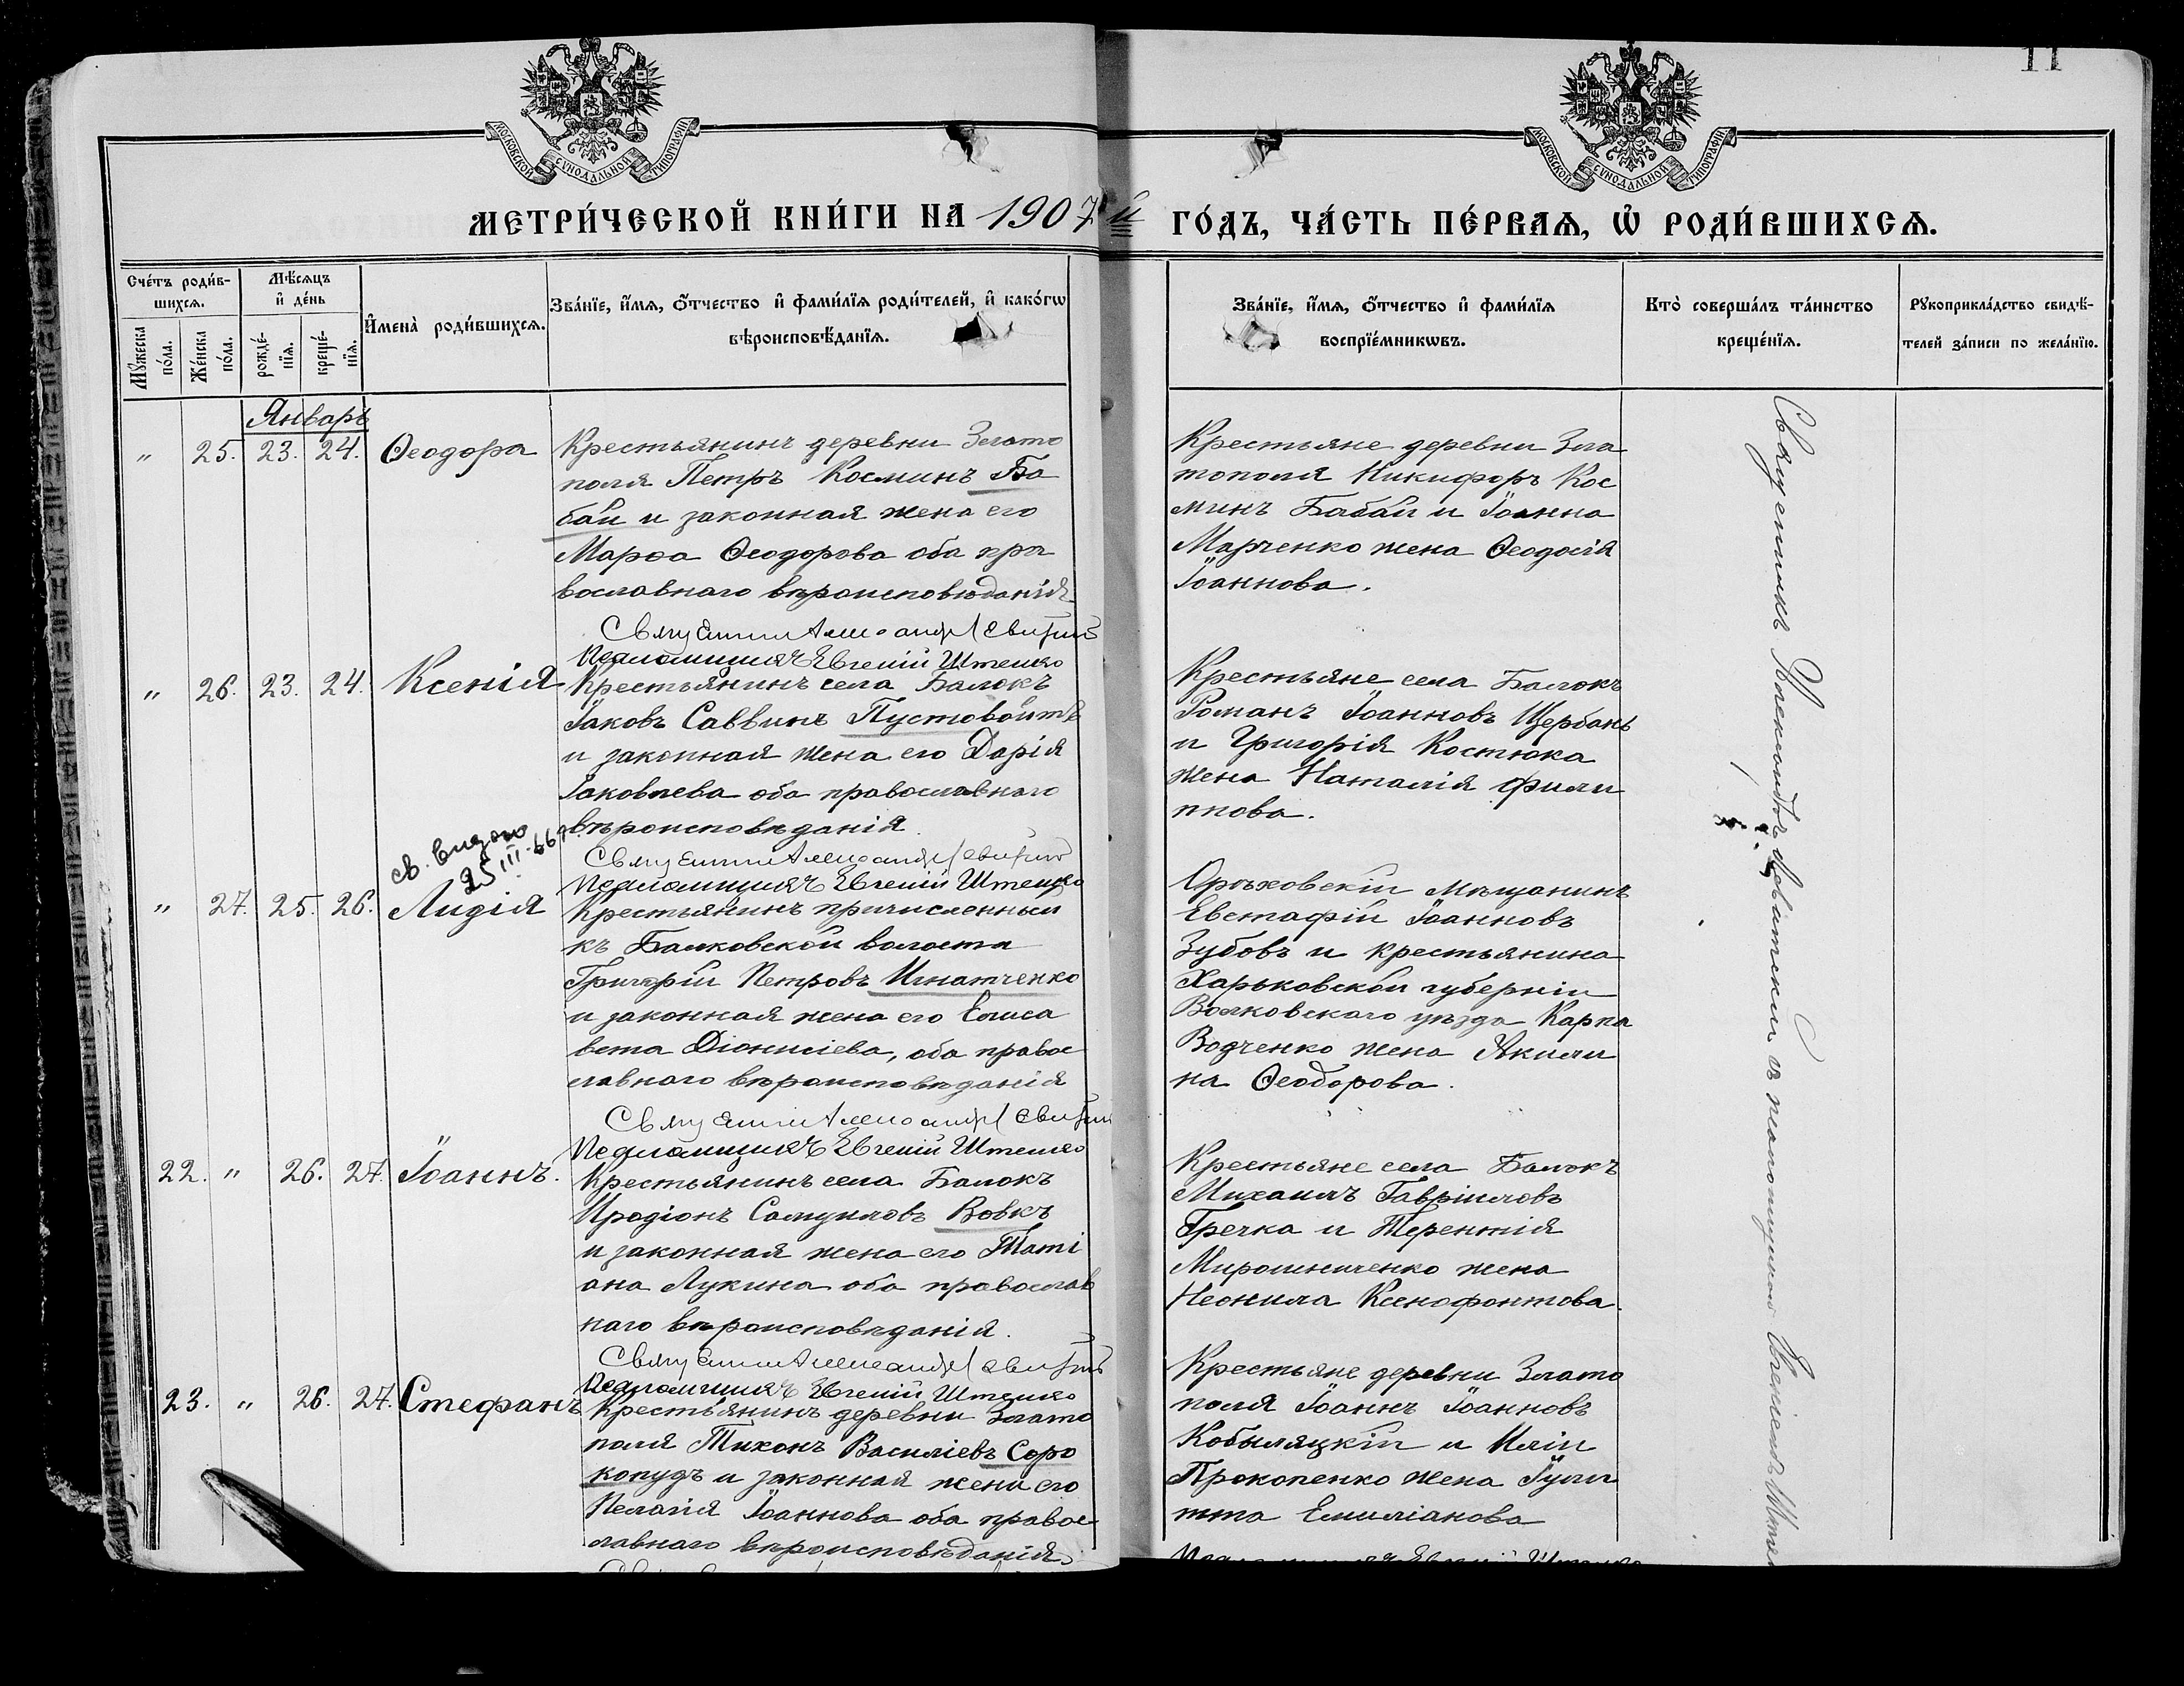 11
МОСКОВСКОЙ СѴНОДАЛЬНОЙ ТИПОГРАФІИ
МОСКОВСКОЙ СѴНОДАЛЬНОЙ ТИПОГРАФІИ
МЕТРИ́ЧЕСКОЙ КНИ́ГИ НА 1907 й ГО́ДЪ, ЧА́СТЬ ПЕ́РВАЯ, Ѡ҆ РОДИ́ВШИХСЯ.
Сче́тъ роди́в-
шихся.
Мѣ́сяцъ
и҆ де́нь
Мꙋ́жеска по́ла.
Же́нска по́ла.
рожде́-нїя.
креще́-нїя.
И҆мена̀ роди́вшихся.
Зва́нїе, и҆́мя, ѻ҆́тчество и҆ фами́лїя роди́телей, и҆ како́гѡ
вѣроисповѣ́данїя.
Зва́нїе, и҆́мя, ѻ҆́тчество и҆ фами́лїя
воспрїе́мникѡвъ.
Кто̀ соверша́лъ та́инство
креще́нїя.
Рꙋкоприкла́дство свидѣ́-
телей за́писи по жела́нїю.
Январь
" 25. 23. 24. Ѳеодора
Крестьянинъ деревни Злато
поля Петръ Косминъ Ба
бай и законная жена его
Марѳа Ѳеодорова оба пра
вославнаго вѣроисповѣданія
Псаломщикъ Евгеній Штенко
Крестьяне деревни Зла
тополя Никифоръ Кос
минъ Бабай и Іоанна
Марченко жена Ѳеодосія
Іоаннова.
" 26. 23. 24. Ксенія
Крестьянинъ села Балокъ
Іаковъ Саввинъ Пустовойтъ
и законная жена его Дарія
Іаковлева оба православнаго
вѣроисповѣданія
Псаломщикъ Евгеній Штенко
Крестьяне села Балокъ
Романъ Іоанновъ Щербань
и Григорія Костюка
жена Наталія Фили
ппова.
св. видано
25 III-66
" 27. 25. 26. Лидія
Крестьянинъ причисленный
къ Балковской волости
Григорій Петровъ Игнатченко
и законная жена его Елиса
вета Діонисіева, оба правос
лавнаго вѣроисповѣданія
Псаломщикъ Евгеній Штенко
Орѣховскій мѣщанинъ
Евстафій Іоанновъ
Зубовъ и крестьянина
Харьковской губерніи
Волковскаго уѣзда Карпа
Водченко жена Акили
на Ѳеодорова.
22. " 26. 27. Іоаннъ.
Крестьянинъ села Балокъ
Иродіонъ Самуиловъ Вовкъ
и законная жена его Таті
ана Лукина оба православ
наго вѣроисповѣданія.
Псаломщикъ Евгеній Штенко
Крестьяне села Балокъ
Михаилъ Гавріиловъ
Гречка и Терентія
Мирошниченко жена
Неонила Ксенофонтова.
23. " 26. 27. Стефанъ
Крестьянинъ деревни Злато
поля Тихонъ Василіевъ Соро
копудъ и законная жена его
Пелагія Іоаннова оба правос
лавнаго вѣроисповѣданія.
Крестьяне деревни Злато
поля Іоаннъ Іоанновъ
Кобыляцкій и Иліи
Прокопенко жена Іули
тта Емиліанова
Псаломщикъ Евгеній Штенко
Священникъ съ псаломщикомъ Евгеніемъ